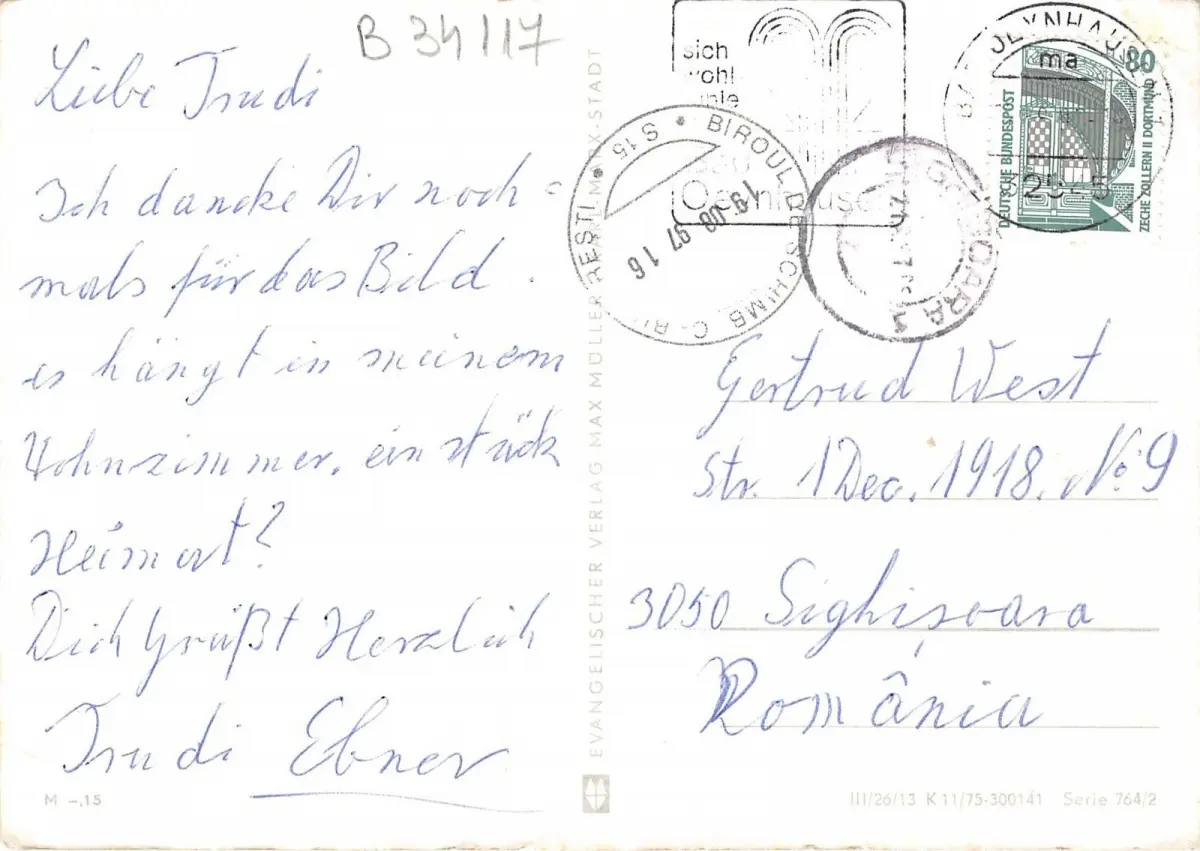 B 34117
Liebe Trudi
Ich dancke Dir noch =
mals für das Bild.
es hängt in meinem
Wohnzimmer. ein stück
Heimat?
Dich Grüßt Herzlich
Trudi Ebner
M -,15
EVANGELISCHER VERLAG MAX MÜLLER KARL-MARX-STADT
sich
wohl
Oeynhausen
OEYNHAUSEN
ma
25
80
DEUTSCHE BUNDESPOST
ZECHE ZOLLERN II DORTMUND
BIROUL DE SCHIMB
S15
19.08.97 16
Gertrud West
Str. 1 Dec. 1918. No 9
3050 Sighişoara
România
III/26/13 K 11/75-300141 Serie 764/2